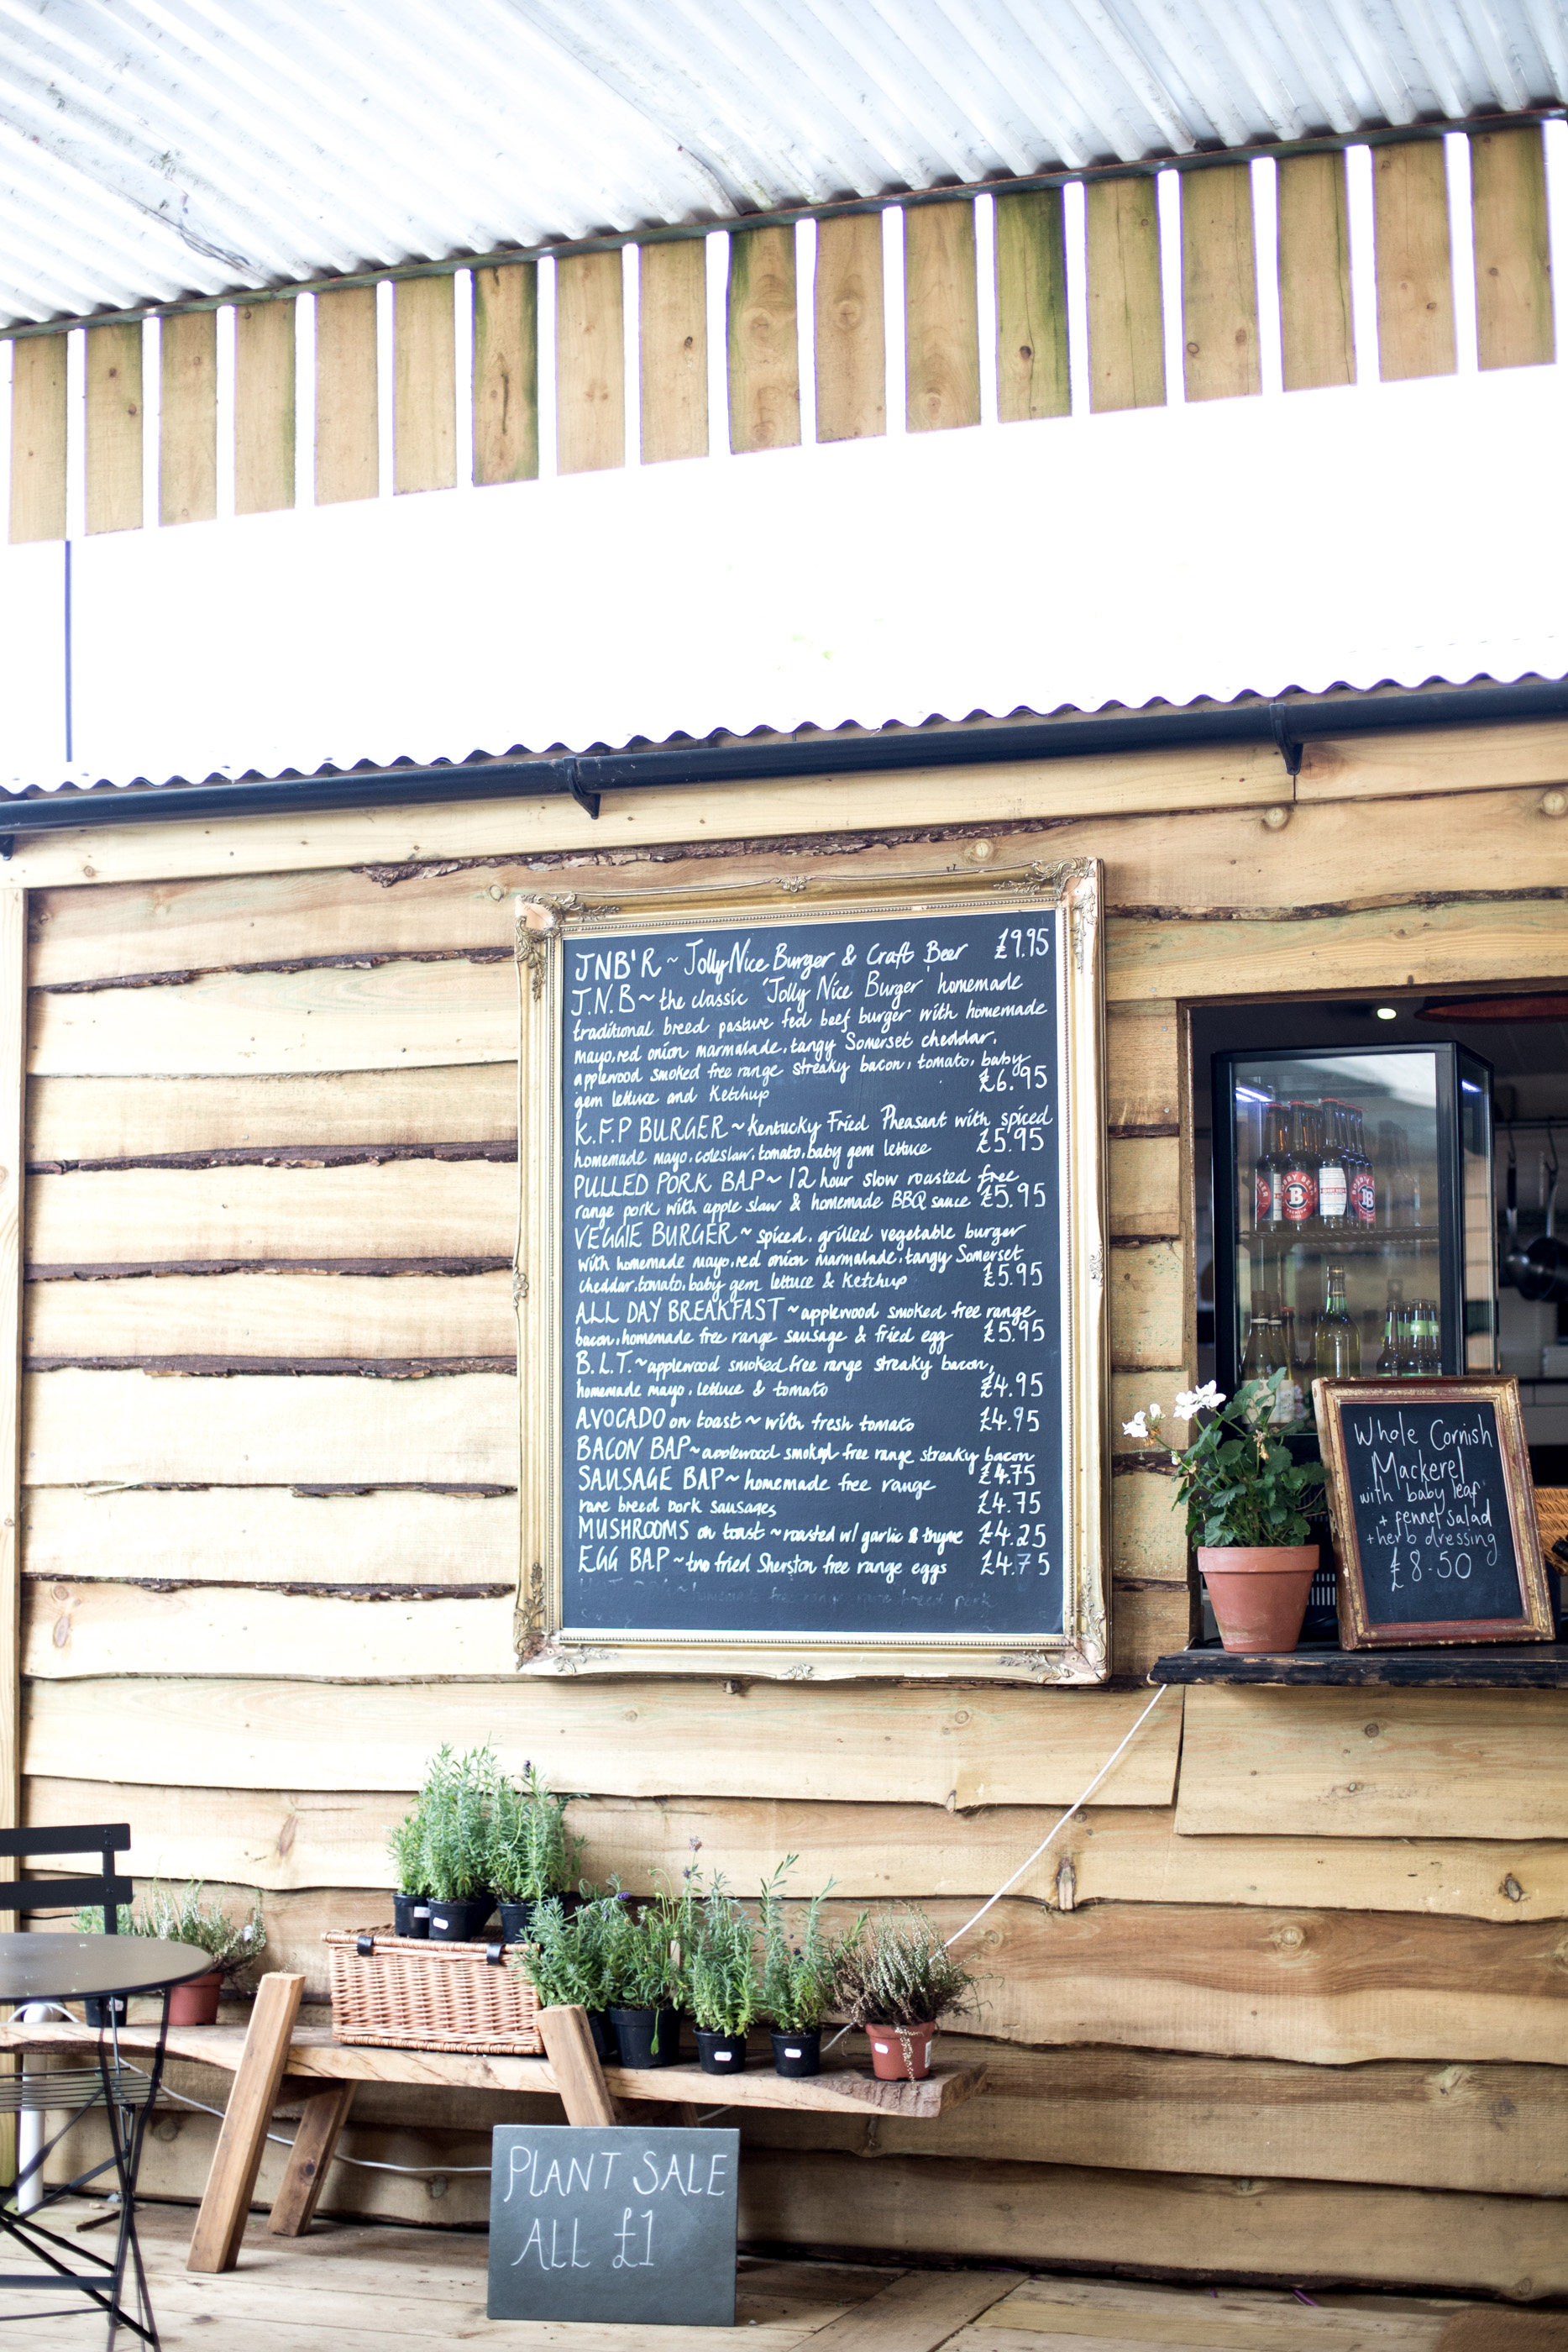 JNB'R ~ Jolly Nice Burger & Craft Beer £9.95
J.N.B ~ the classic 'Jolly Nice Burger' homemade
traditional breed pasture fed beef burger with homemade
mayo, red onion marmalade, tangy Somerset cheddar,
applewood smoked free range streaky bacon, tomato, baby
gem lettuce and Ketchup £6.95
K.F.P BURGER ~ Kentucky Fried Pheasant with spiced
homemade mayo, coleslaw, tomato, baby gem lettuce £5.95
PULLED PORK BAP ~ 12 hour slow roasted free
range pork with apple slaw & homemade BBQ sauce £5.95
VEGGIE BURGER ~ spiced, grilled vegetable burger
with homemade mayo, red onion marmalade, tangy Somerset
cheddar, tomato, baby gem lettuce & Ketchup £5.95
ALL DAY BREAKFAST ~ applewood smoked free range
bacon, homemade free range sausage & fried egg £5.95
B.L.T. ~ applewood smoked free range streaky bacon,
homemade mayo, lettuce & tomato £4.95
AVOCADO on toast ~ with fresh tomato £4.95
BACON BAP ~ applewood smoked free range streaky bacon
£4.75
SAUSAGE BAP ~ homemade free range
rare breed pork sausages £4.75
MUSHROOMS on toast ~ roasted w/ garlic & thyme £4.25
EGG BAP ~ two fried Sherston free range eggs £4.75
homemade free range rare breed pork
Whole Cornish
Mackerel
with baby leaf
+ fennel salad
+ herb dressing
£8.50
PLANT SALE
ALL £1